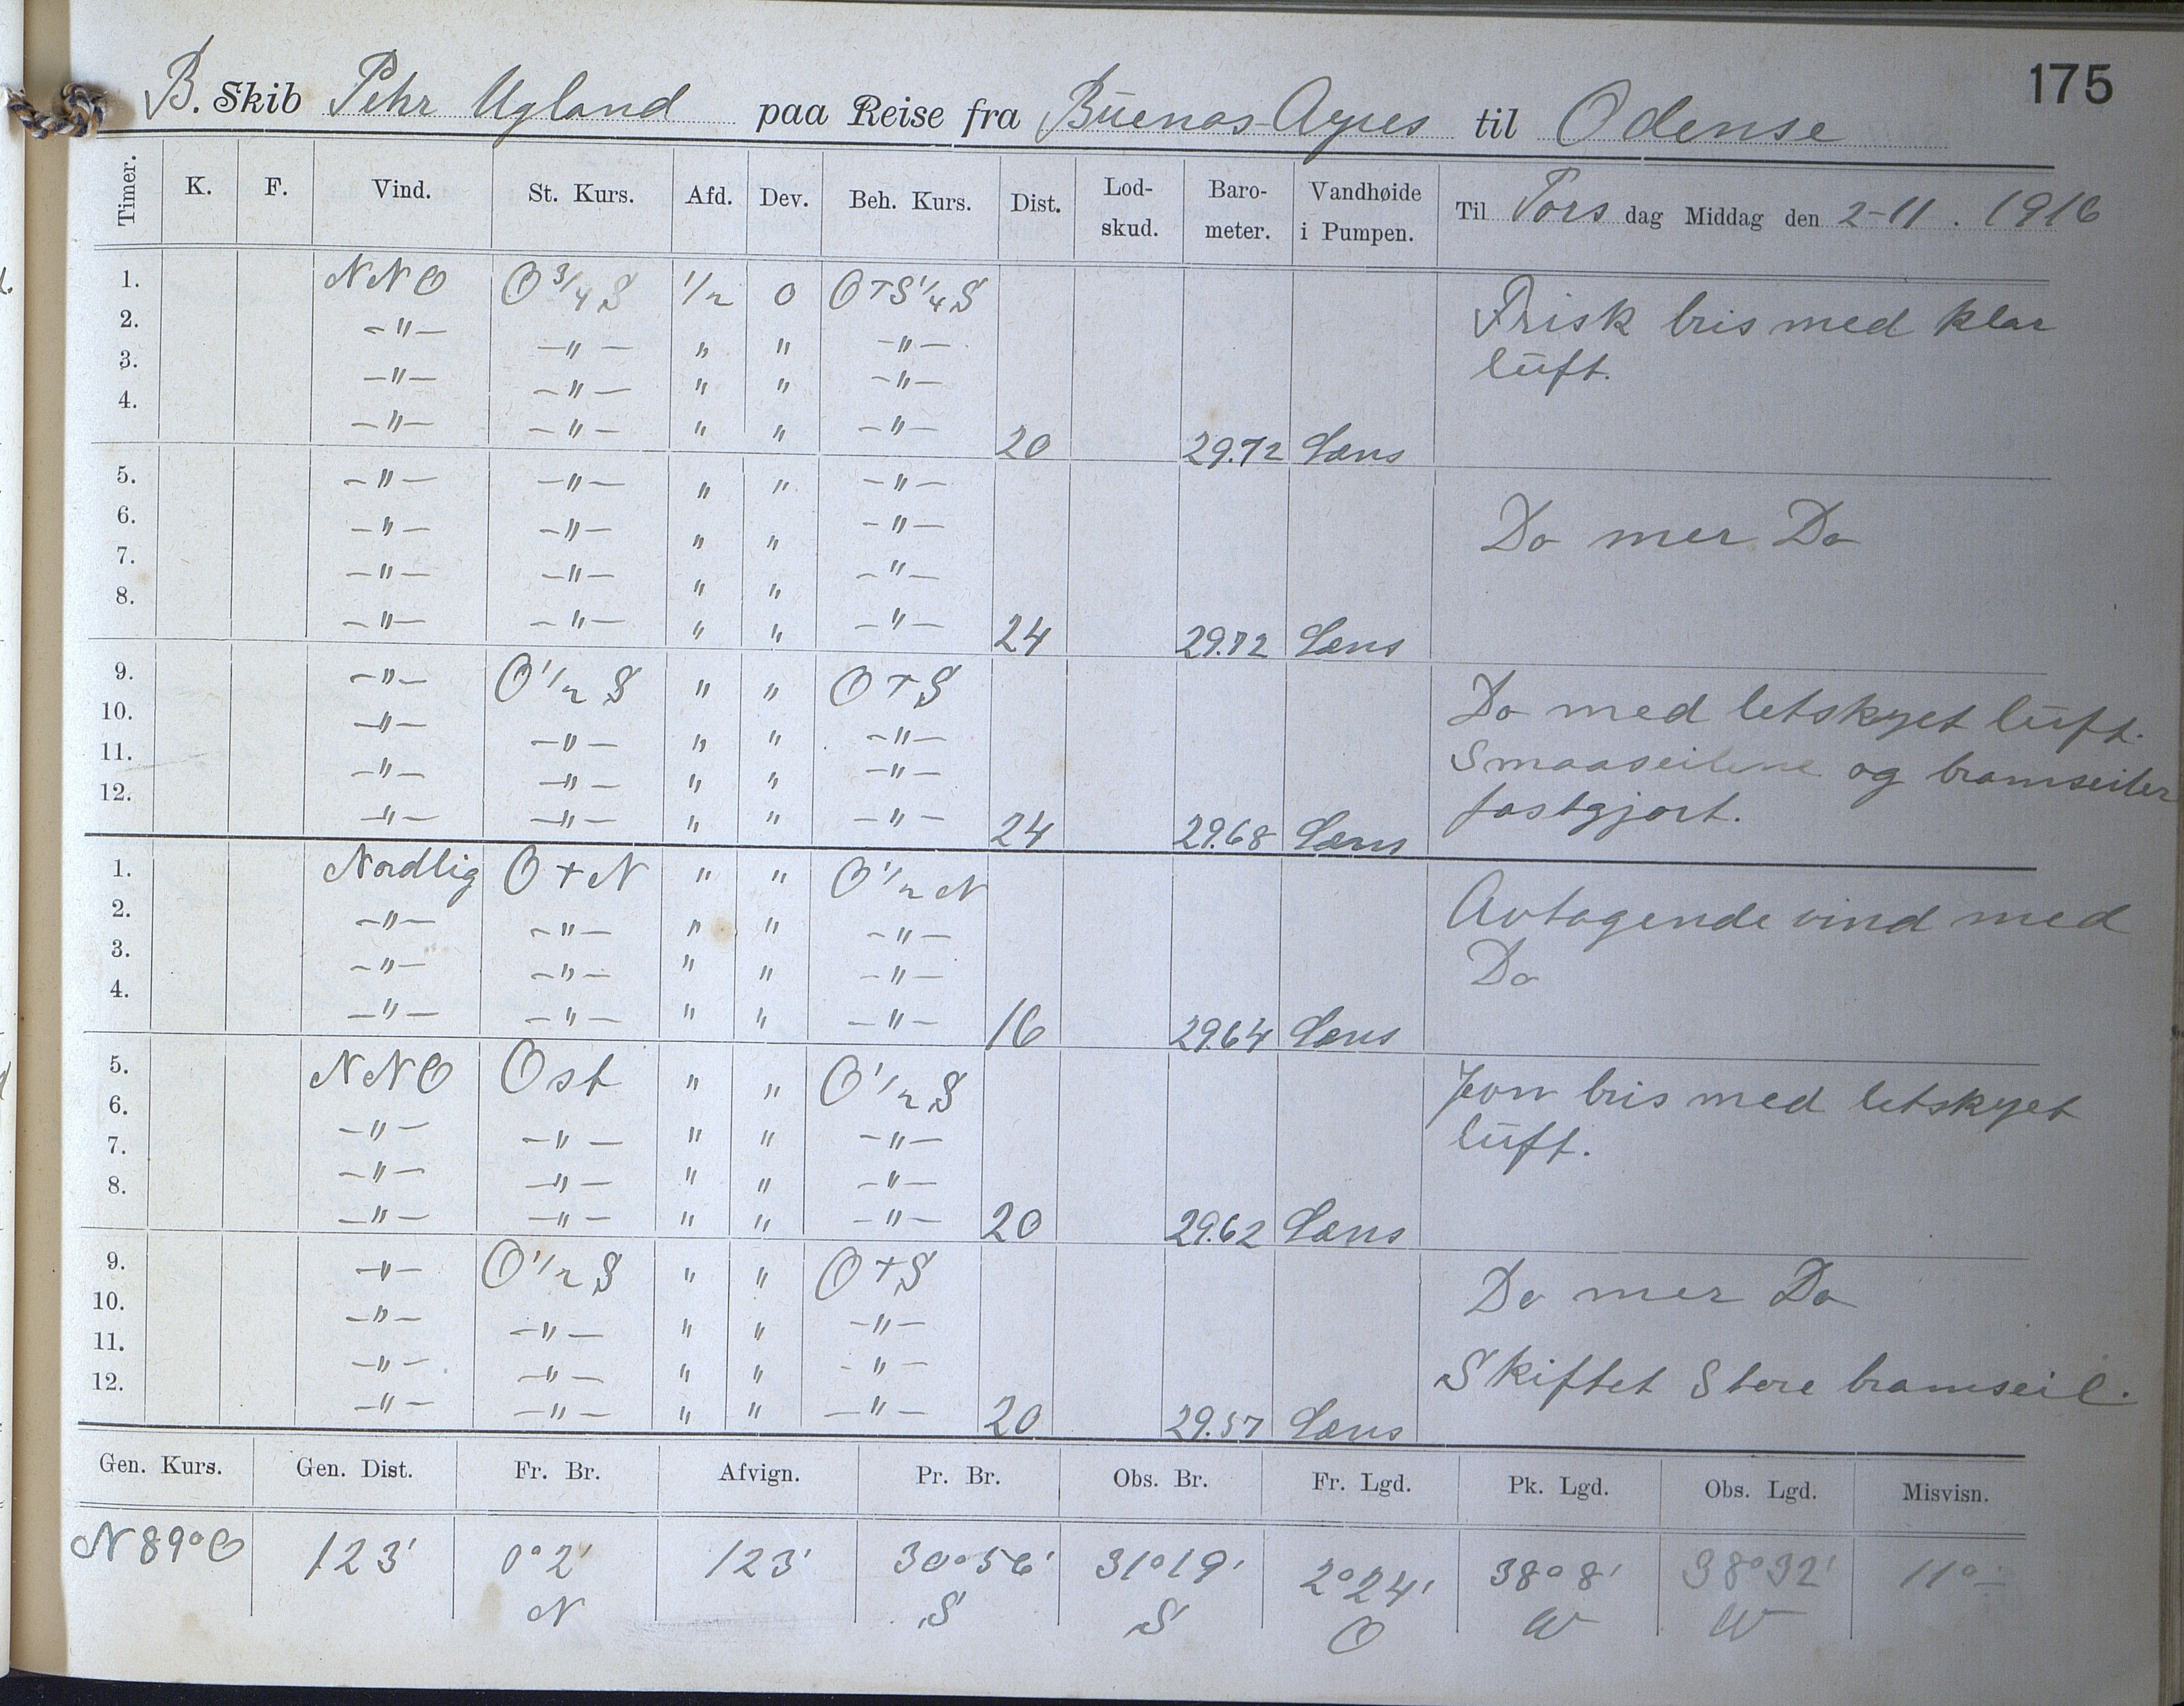 175
B. Skib Pehr Ugland paa Reise fra Buenos-Ayres til Odense
Timer. K. F. Vind. St. Kurs. Afd. Dev. Beh. Kurs. Dist. Lod-skud. Baro-meter. Vandhøide i Pumpen. Til Tors dag Middag den 2-11. 1916
1. NNO O 3/4 S 1/2 0 OTS 1/4 S Frisk bris med klar
2. -"- -"- " " -"- luft.
3. -"- -"- " " -"-
4. -"- -"- " " -"- 20 29.72 Læns
5. -"- -"- " " -"-
6. -"- -"- " " -"- Do mer Do
7. -"- -"- " " -"-
8. -"- -"- " " -"- 24 29.72 Læns
9. -"- O 1/2 S " " OTS Do med letskyet luft.
10. -"- -"- " " -"- Smaaseilene og bramseiler
11. -"- -"- " " -"- fastgjort.
12. -"- -"- " " -"- 24 29.68 Læns
1. Nordlig O T N " " O 1/2 N Avtagende vind med
2. -"- -"- " " -"- Do
3. -"- -"- " " -"-
4. -"- -"- " " -"- 16 29.64 Læns
5. NNO Ost " " O 1/2 S Jevn bris med letskyet
6. -"- -"- " " -"- luft.
7. -"- -"- " " -"-
8. -"- -"- " " -"- 20 29.62 Læns
9. -"- O 1/2 S " " OTS Do mer Do
10. -"- -"- " " -"-
11. -"- -"- " " -"- Skiftet Store bramseil.
12. -"- -"- " " -"- 20 29.57 Læns
Gen. Kurs. Gen. Dist. Fr. Br. Afvign. Pr. Br. Obs. Br. Fr. Lgd. Pk. Lgd. Obs. Lgd. Misvisn.
N 89° O 123' 0° 2' 123' 30° 56' 31° 19' 2° 24' 38° 8' 38° 32' 11° -
N S S O W W